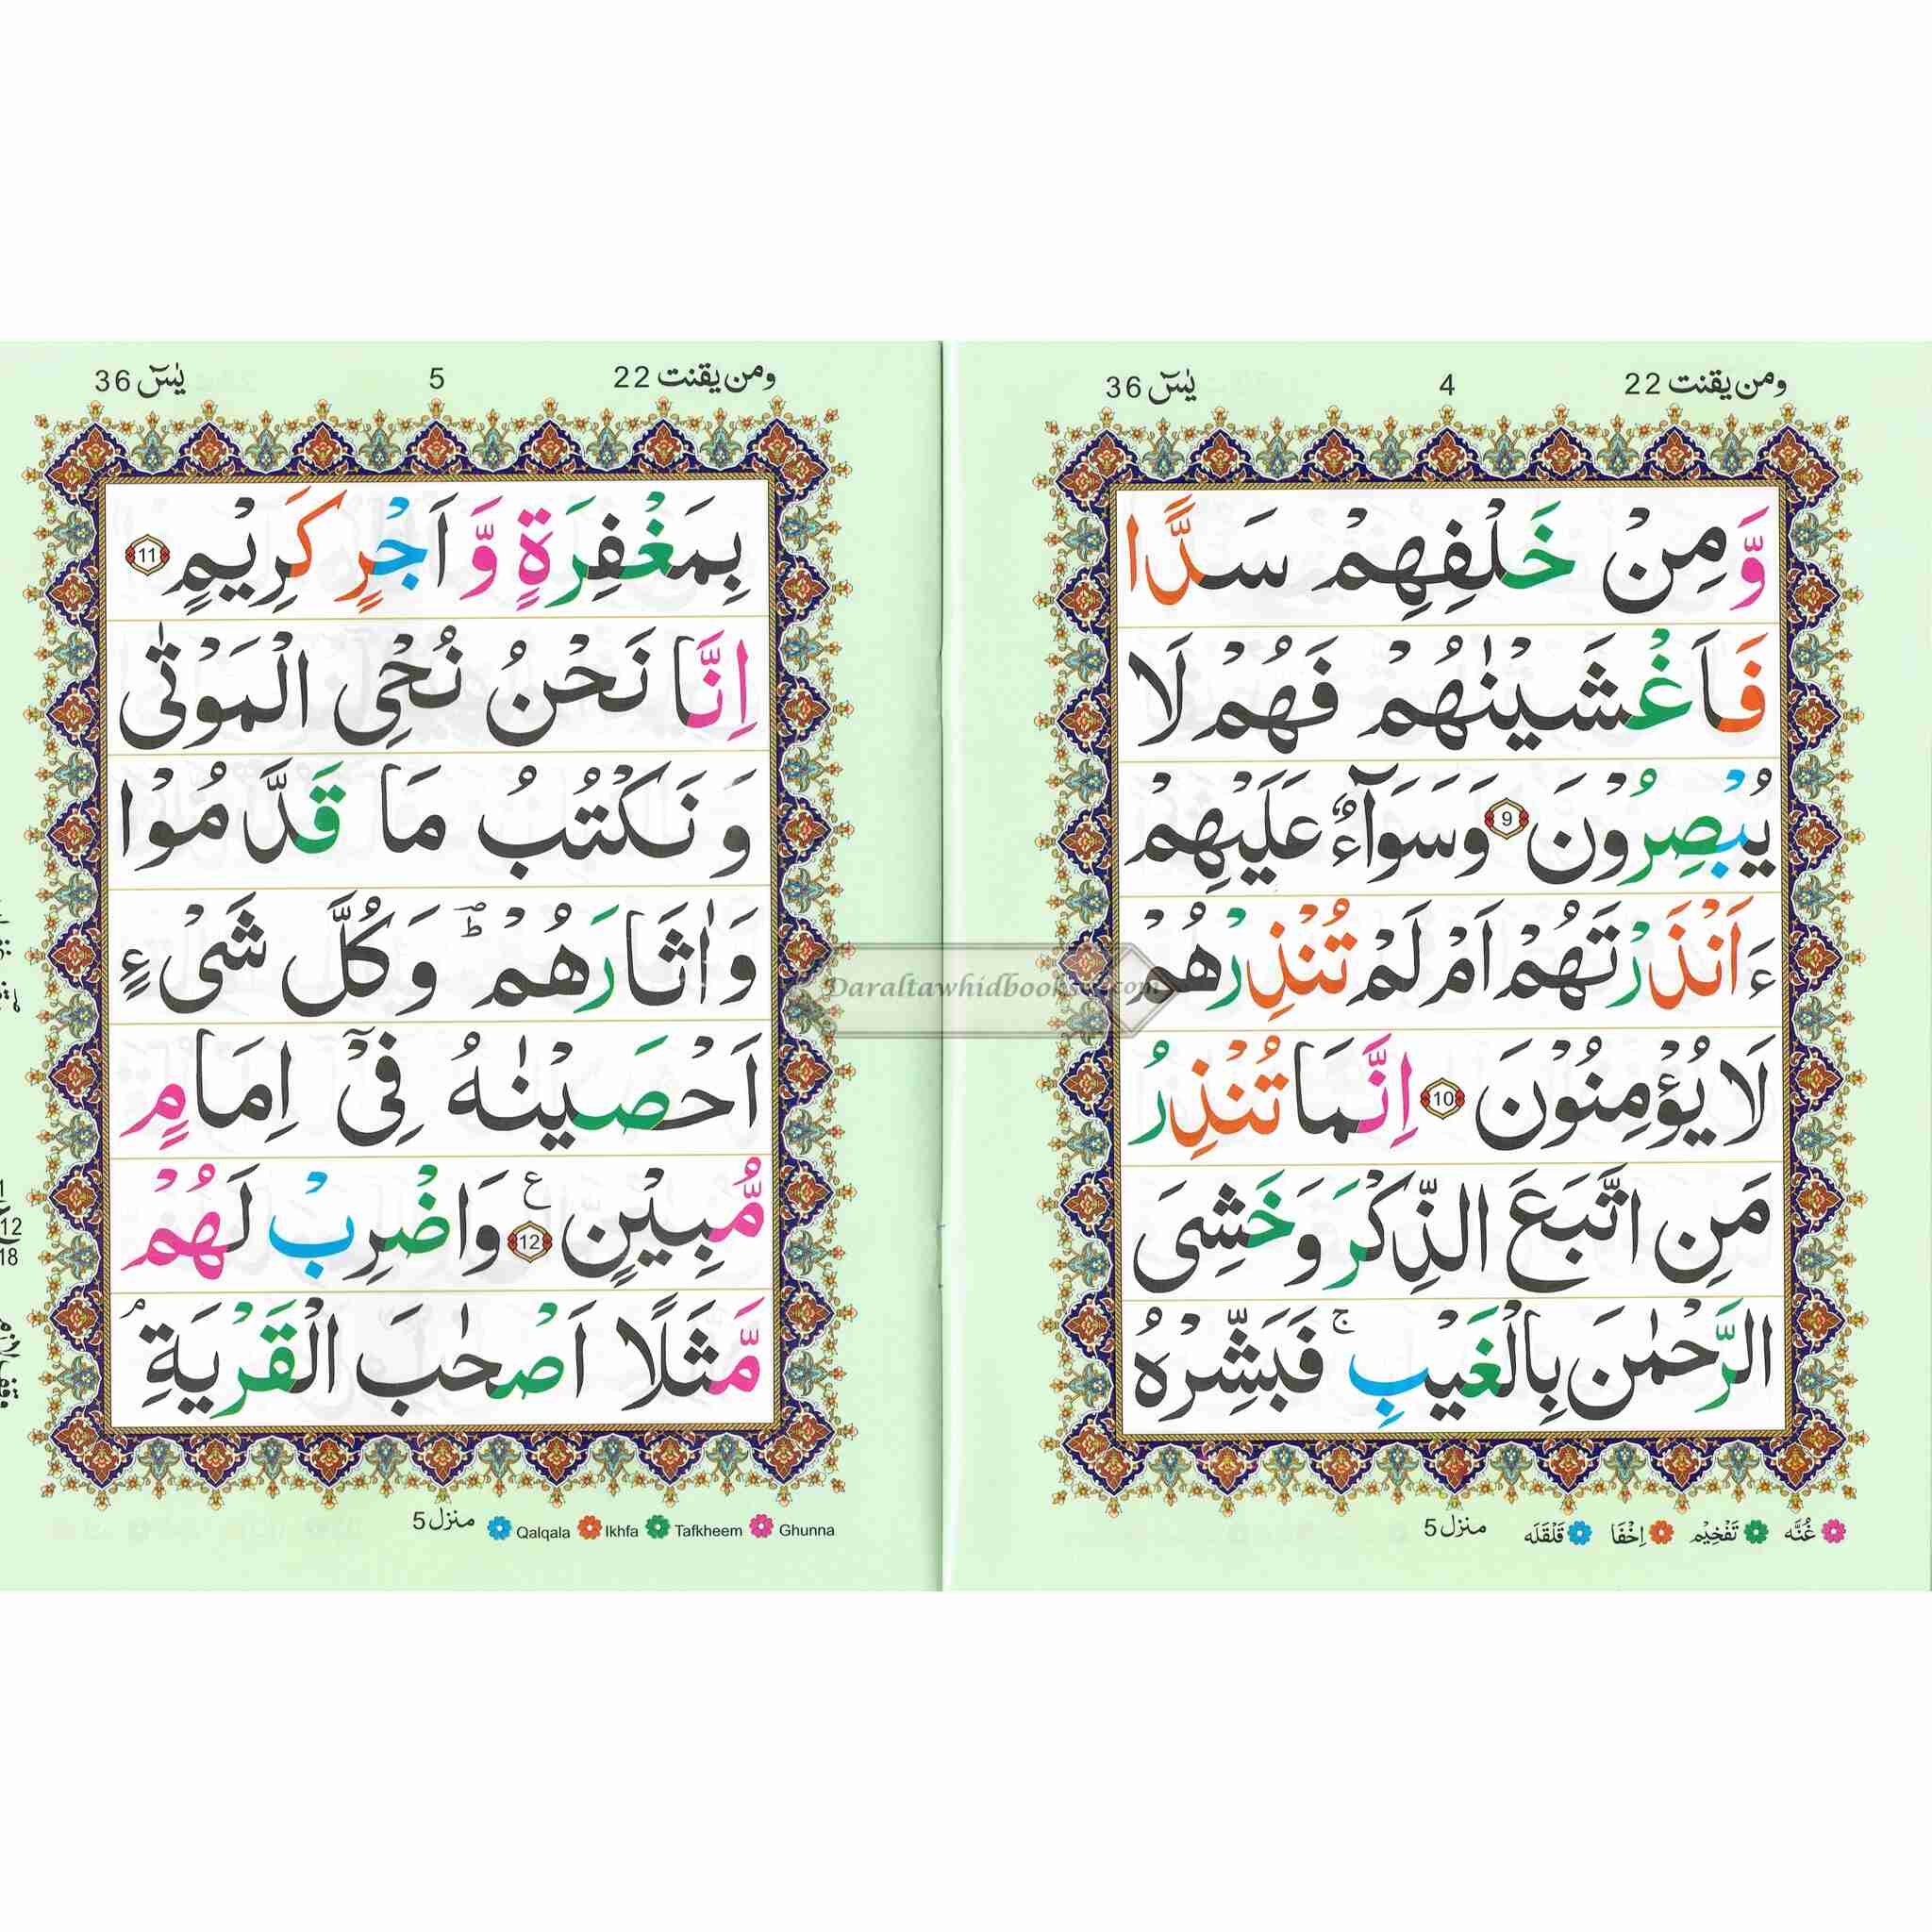 ومن یقنت 22
4
یٰسٓ 36
وَّ مِنْ خَلْفِهِمْ سَدًّا
فَاَغْشَیْنٰهُمْ فَهُمْ لَا
یُبْصِرُوْنَ 9 وَسَوَآءٌ عَلَیْهِمْ
ءَاَنْذَرْتَهُمْ اَمْ لَمْ تُنْذِرْهُمْ
لَا یُؤْمِنُوْنَ 10 اِنَّمَا تُنْذِرُ
مَنِ اتَّبَعَ الذِّكْرَ وَخَشِیَ
الرَّحْمٰنَ بِالْغَیْبِ ۚ فَبَشِّرْهُ
غُنَّه تَفْخِیْم اِخْفَا قَلْقَلَه
منزل 5
ومن یقنت 22
5
یٰسٓ 36
بِمَغْفِرَةٍ وَّ اَجْرٍ كَرِیْمٍ 11
اِنَّا نَحْنُ نُحْیِ الْمَوْتٰی
وَ نَكْتُبُ مَا قَدَّمُوْا
وَاٰثَارَهُمْ ؕ وَكُلَّ شَیْءٍ
اَحْصَیْنٰهُ فِیْۤ اِمَامٍ
مُّبِیْنٍ ع 12 وَاضْرِبْ لَهُمْ
مَّثَلًا اَصْحٰبَ الْقَرْیَةِ ۘ
Qalqala Ikhfa Tafkheem Ghunna
منزل 5
1
ع
12
18
Daraltawhidbooks.com